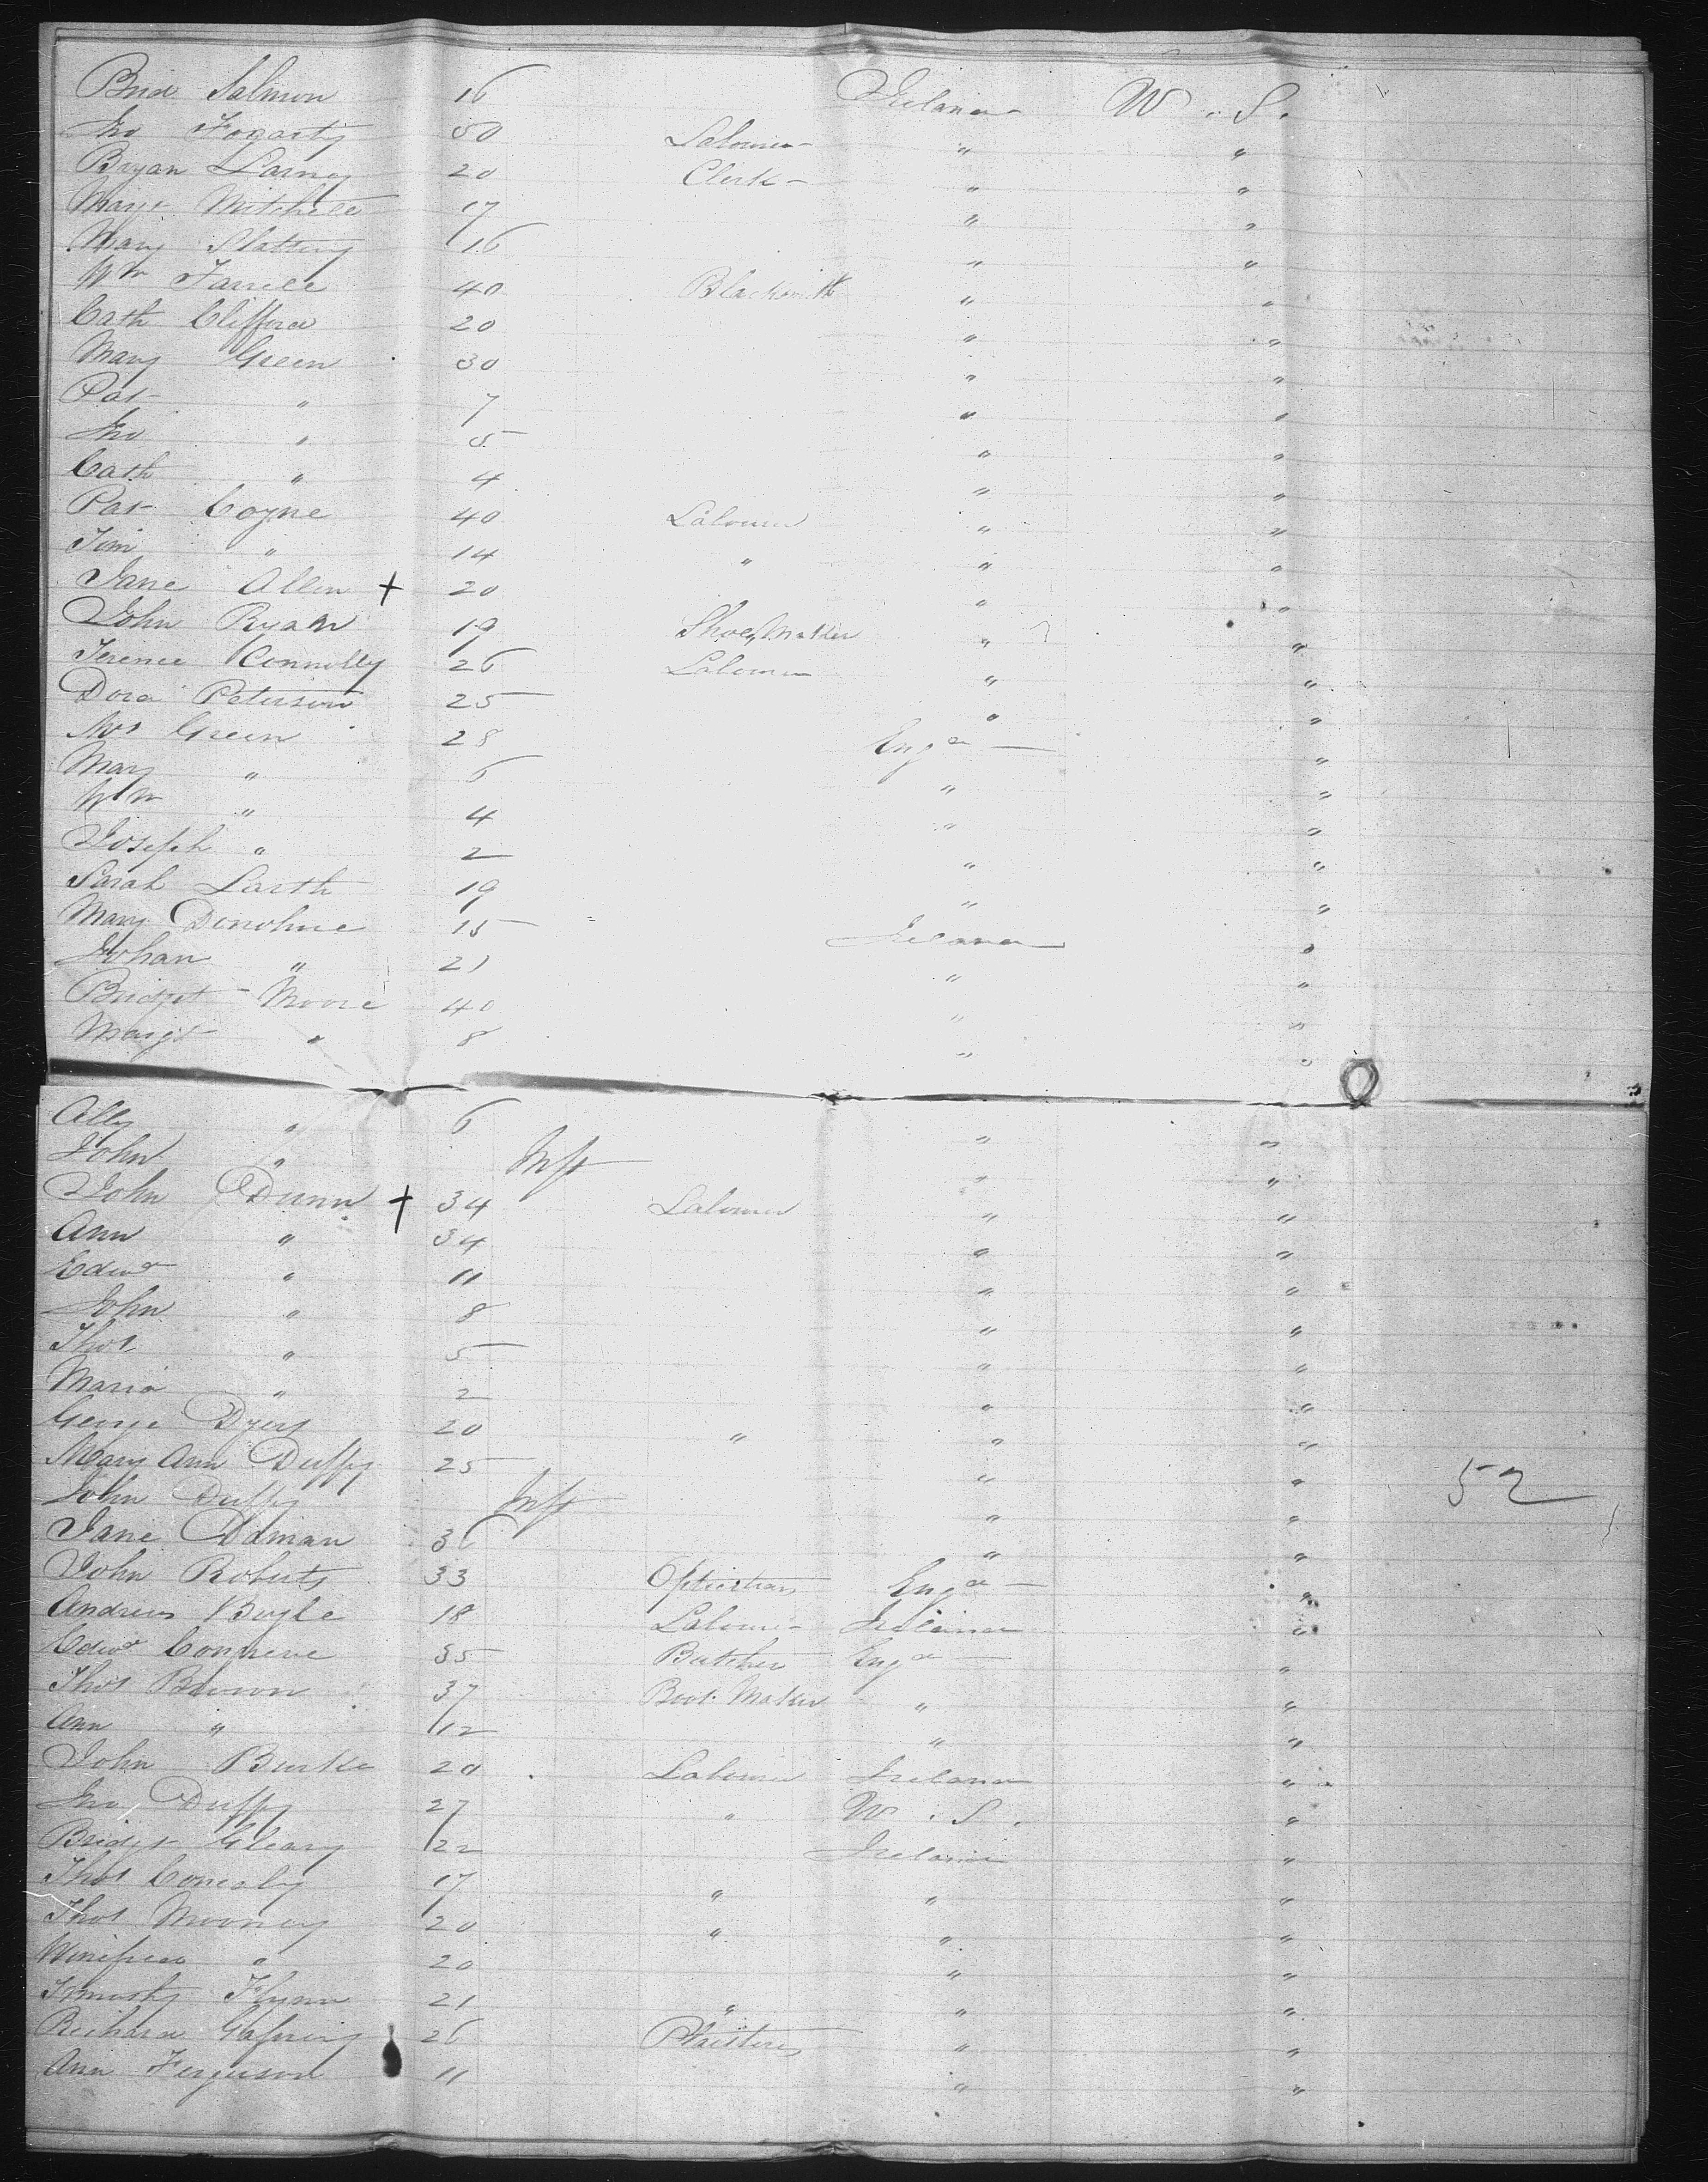 Brid Salmon 16 Ireland U. S.
Jno Fogarty 50 Labourer " "
Bryan Larney 20 Clerk " "
Margt Mitchell 17 " "
Mary Slattery 16 " "
Wm Farrell 40 Blacksmith " "
Cath Clifford 20 " "
Mary Green 30 " "
Pat " 7 " "
Jno " 5 " "
Cath " 4 " "
Pat Coyne 40 Labourer " "
Tim " 14 " " "
Jane Allen + 20 " "
John Ryan 19 Shoe Maker " "
Terence Connolly 26 Labourer " "
Dora Peterson 25 " "
Mrs Green 28 Engd "
Mary " 6 " "
Wm " 4 " "
Joseph " 2 " "
Sarah 19 " "
Mary Donohue 15 Ireland "
Johan " 21 " "
Bridget Moore 40 " "
Margt " 8 " "
Ally " 6 " "
John " Inft " "
John Dunn + 34 Labourer " "
Ann " 34 " "
Edwd " 11 " "
John " 8 " "
Thos " 5 " "
Maria " 2 " "
George Dyers 20 " " "
Mary Ann Duffy 25 " "
52
John Duffy Inft " "
Jane 36 " "
John Roberts 33 Optician Engd "
Andrew Boyle 18 Labourer Ireland "
Edwd Congreve 35 Butcher Engd "
Thos Brown 37 Boot Maker " "
Ann " 12 " "
John Burke 20 Labourer Ireland "
Jno Duffy 27 " U. S. "
Bridgt Cleary 22 Ireland "
Thos 17 " " "
Thos Mooney 20 " " "
Winifred " 20 " "
Timothy Flynn 21 " " "
Richard 26 Plaisterer " "
Ann Ferguson 11 " "